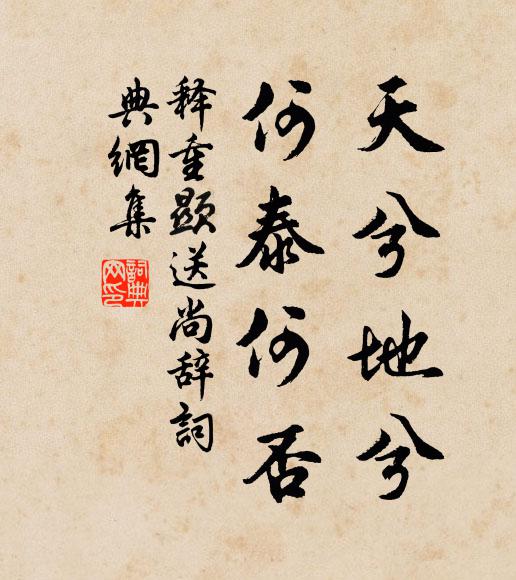 天兮地兮
何泰何否
释重顯送尚辞詞
典網集
詞典
网印